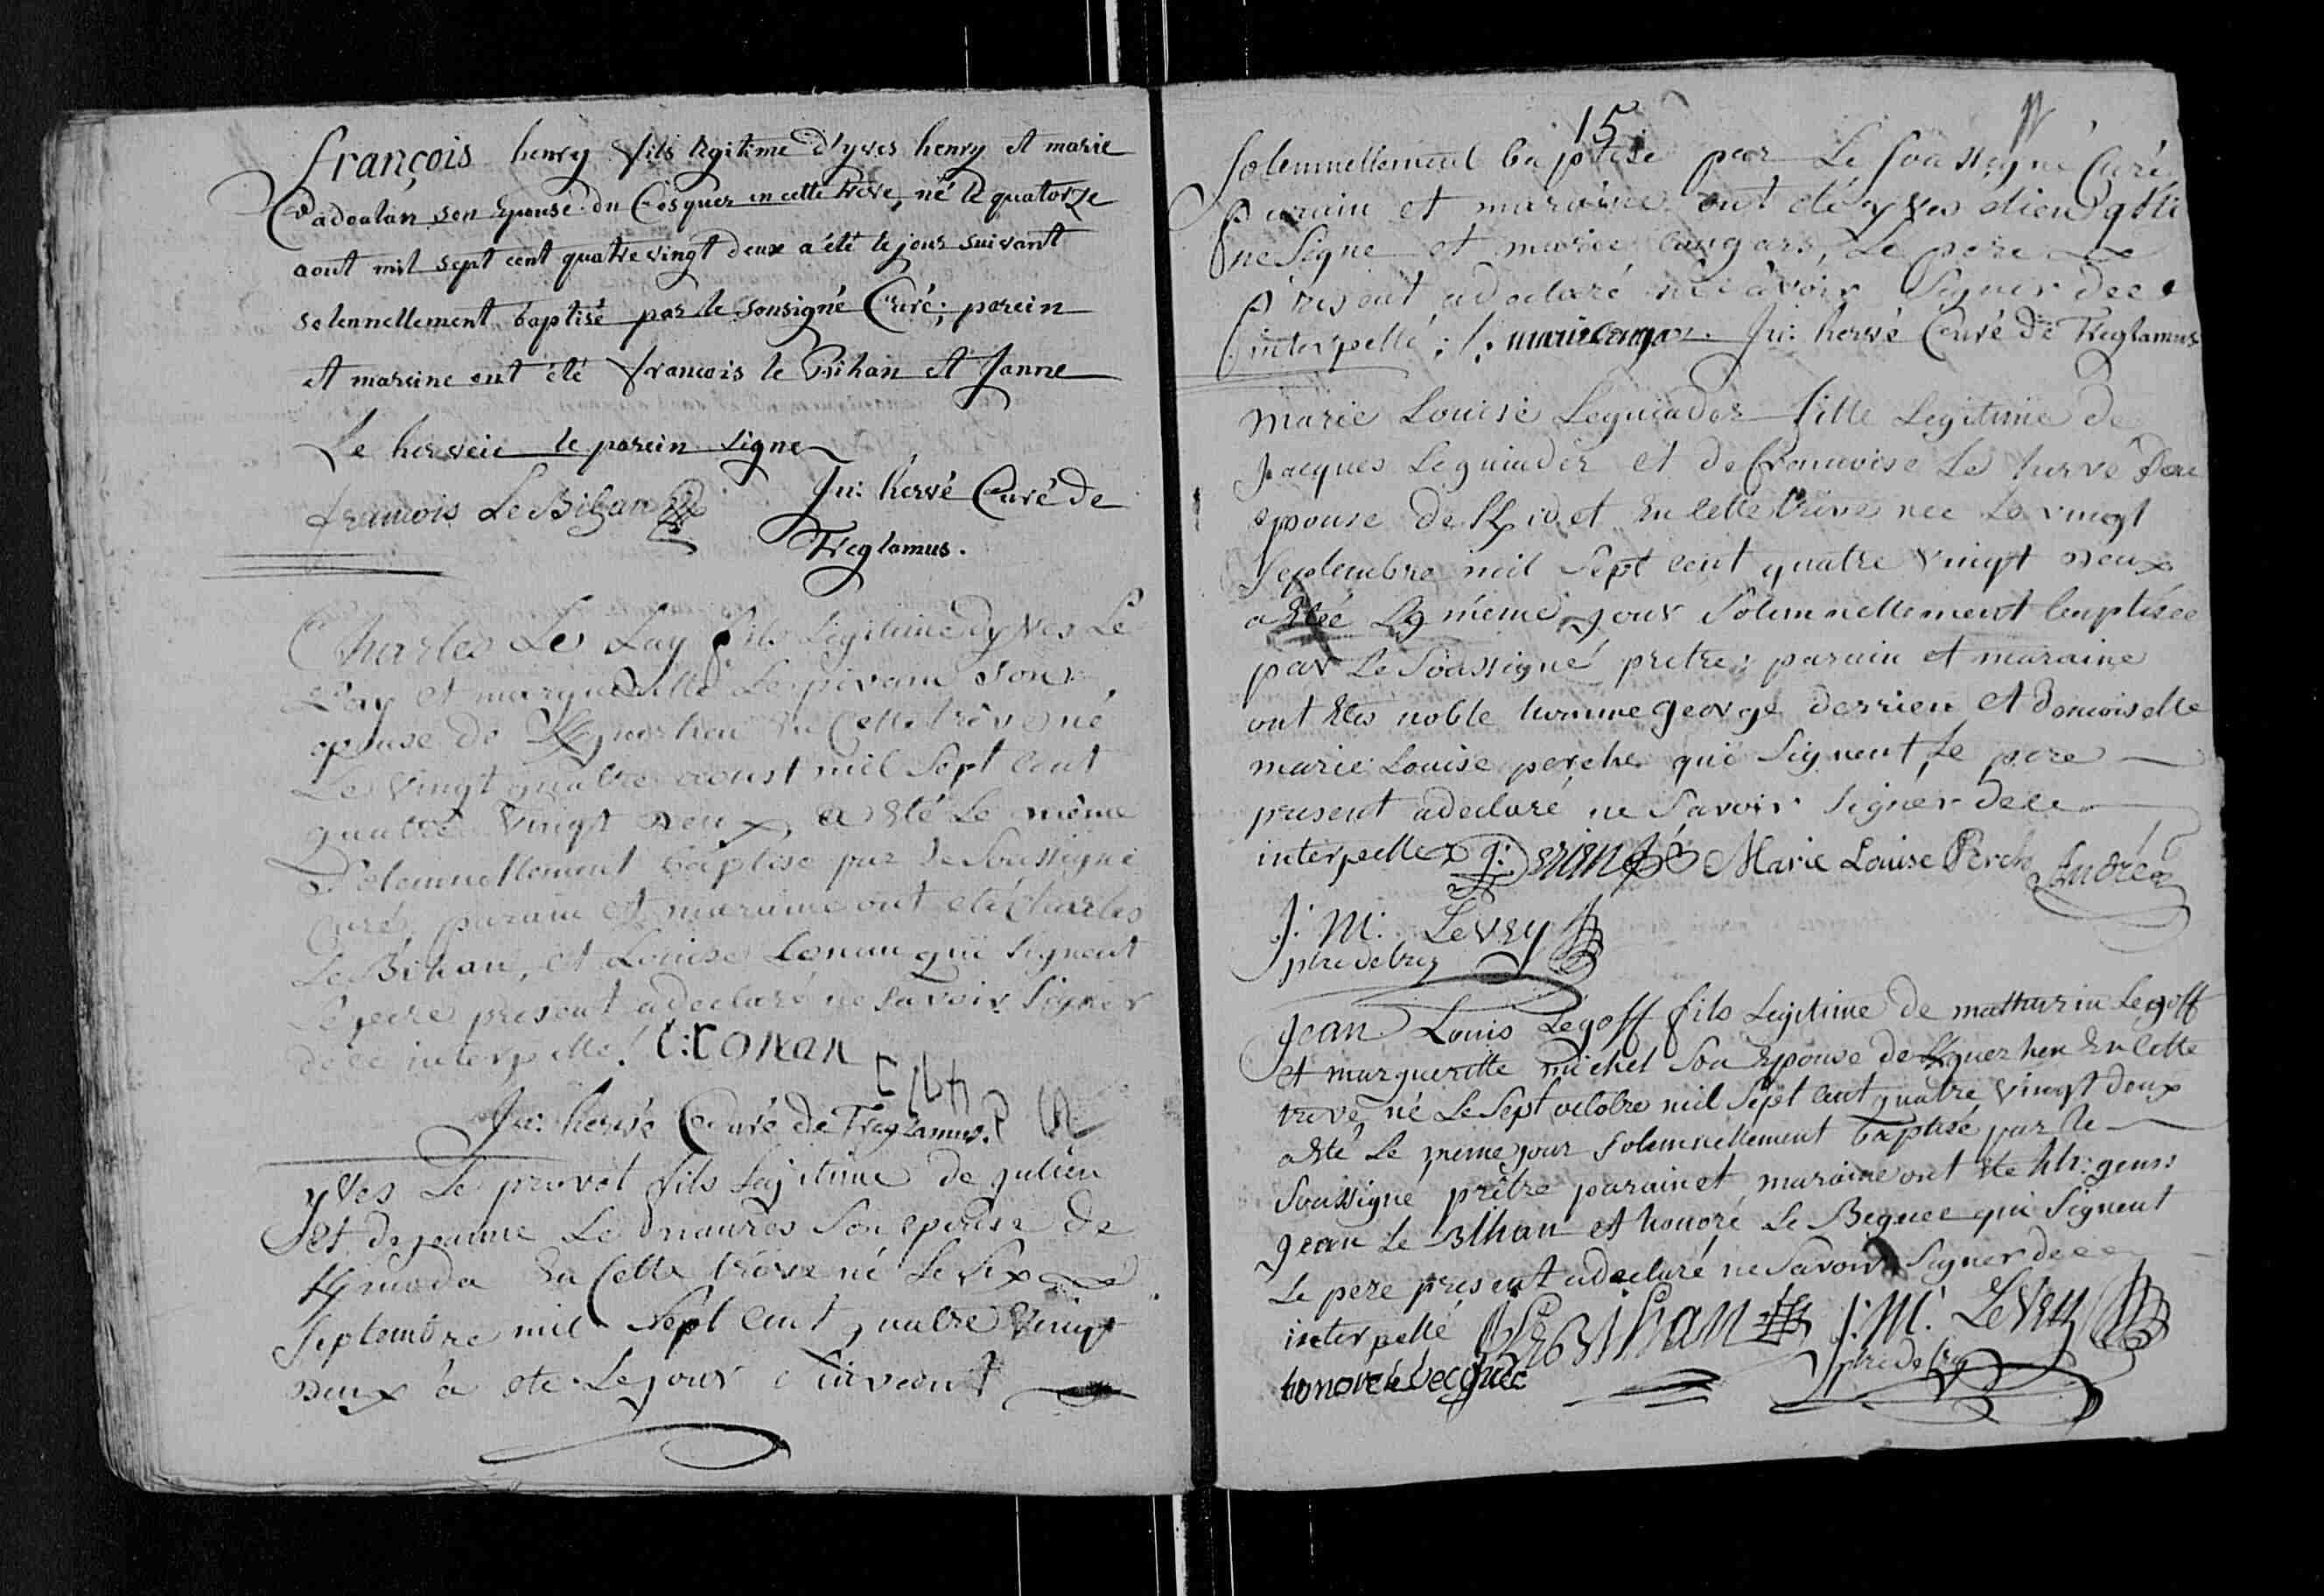 françois henry fils legitime d'yves henry et marie
Cadoalan son Epouse du Cosquer en cette treve, né le quatorze
aout mil sept cent quatre vingt deux a été le jour suivant
solennellement baptisé par le sousigné Curé; parein
et mareine ont été francois le Bihan et Janne
Le herveic le parein signe
francois Le Bihan Ju: hervé Curé de
Treglamus.
Charles Le Lay fils Legitime dyves Le
Lay et margueritte Le pivain son
epouse de en Cette trève né
Le vingt quatre aoust mil Sept Cent
quatre Vingt Deux, a Eté Le même
Solemnellement baptisé par le Soussigné
Curé, parain et maraine ont eté Charles
Le Bihan, et Louise Conan qui signent
Le pere present adeclaré ne savoir signer
de ce interpellé! C: Conan
Ju: hervé Curé de Treglamus.
yves Le provot fils Legitime de julien
et de jeanne Le maures son epouse de
En Cette trève né Le Six
Septembre mil Sept Cent quatre Vingt
Deux à eté Le jour Suiveant
15
Solemnellement baptisé par Le Soussigné Curé
parain et maraine ont eté yves
ne Signe et marie Congars, Le pere
present adeclaré ne savoir Signer dece
interpellé: /. marie congar. Ju: hervé Curé de Treglamus
marie Louise Leguiader fille Legitime de
Jacques Leguiader et de francoise Le hervé Son
epouse de En Cette trève nee Le vingt
Septembre mil Sept cent quatre Vingt Deux
a Eteé Le même jour Solemnellement baptisée
par Le Soussigné pretre; parain et maraine
ont Etés noble homme george derrien et Demoiselle
marie Louise perche qui Signent Le pere
present adeclaré ne Savoir Signer dece
interpellé g: Derien Marie Louise Perche André
J: M: Levey
ptre de treg
Jean Louis Legoff fils Legitime de mathurin Legoff
et margueritte michel Son Epouse de En Cette
treve, né Le Sept octobre mil Sept Cent quatre Vingt deux
a Eté Le meme jour Solemnellement baptisé par le
Soussigné prêtre parain et maraine ont Eté gens
jean Le Bihan et honoré Le Beguec qui Signent
Le pere present adeclaré ne Savoir Signer dece
interpellé Le Bihan J: M: Levey
honoré Le becguec ptre de treg